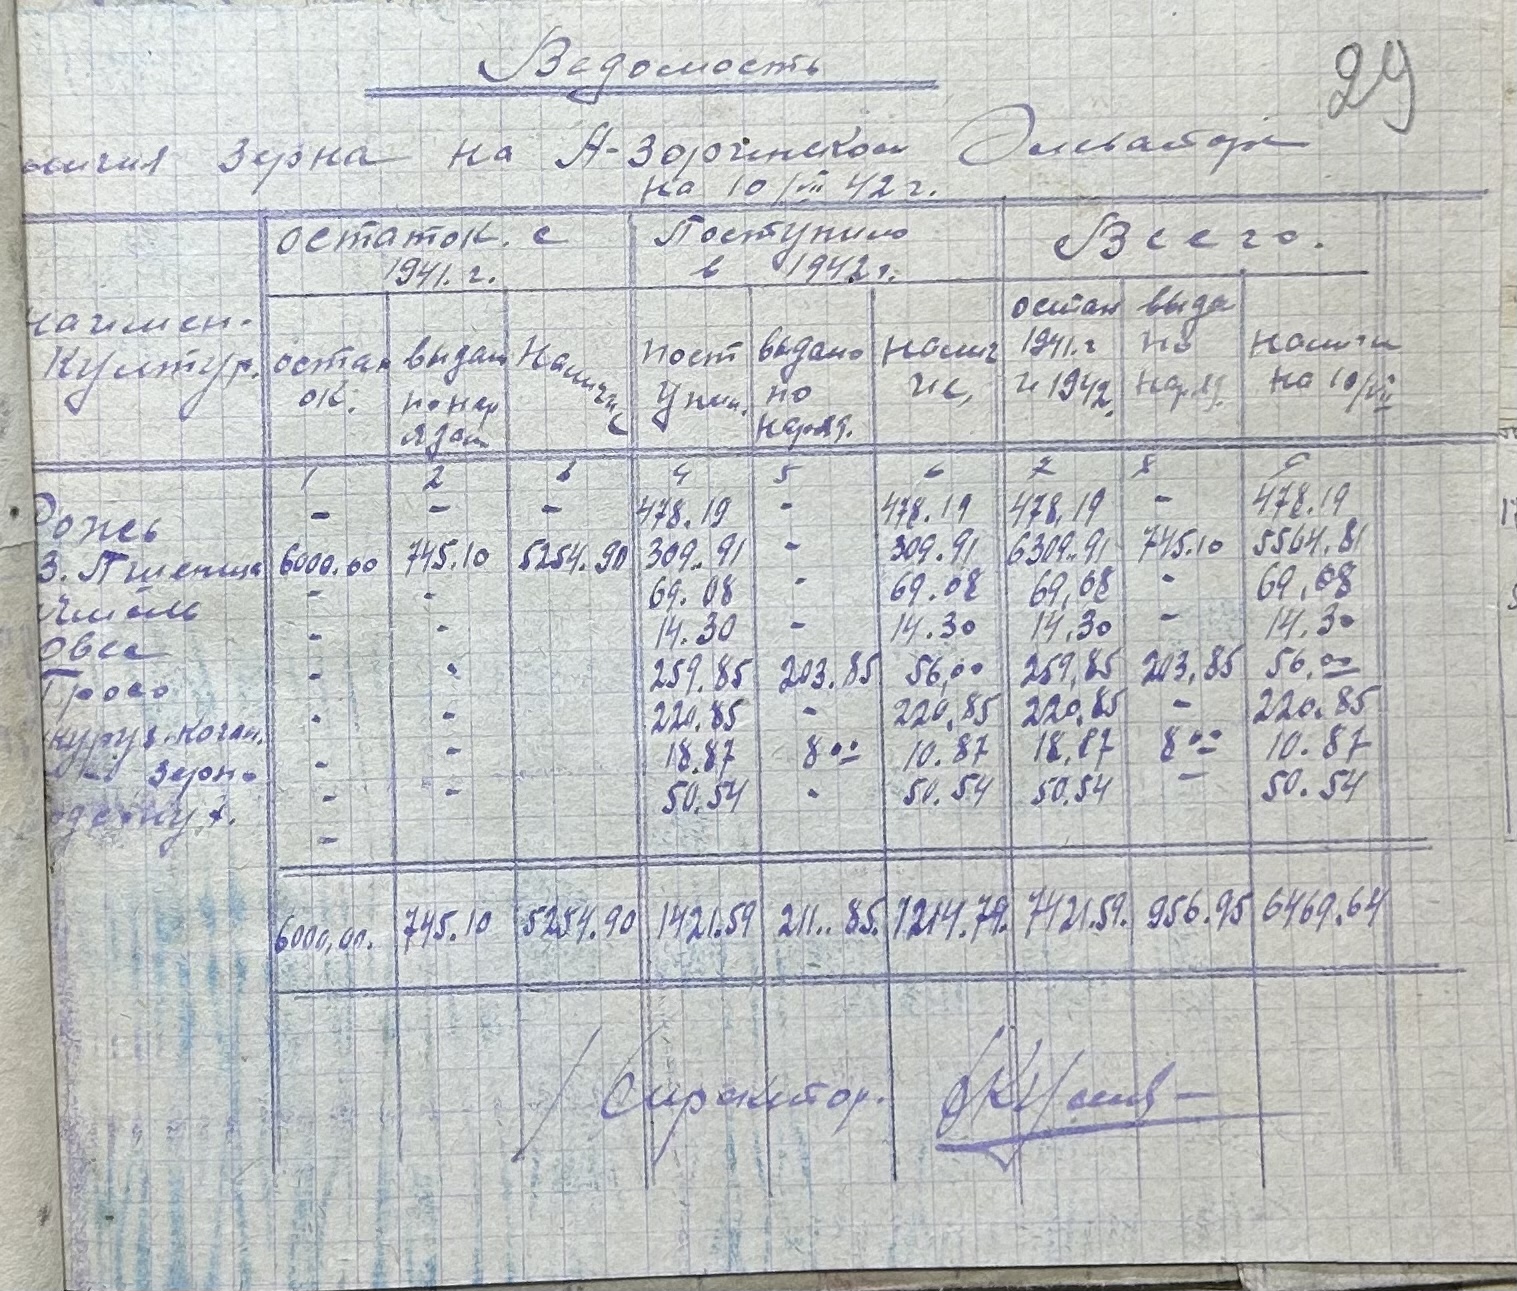 Ведомость
29
личия зерна на А-Зоринском Элеваторе
на 10/VII 42 г.
остаток. с Поступило Всего.
1941. г. в 1942 г.
наимен. Култур. остан ок. выдан по нар ядам Наличие пост упил. выдано по наряд. налич ие, остан 1941. г и 1942. выда по наряд. наличи на 10/VII
1 2 3 4 5 6 7 8 9
Рожь - - - 478.19 - 478.19 478,19 - 478.19
З. Пшеница 6000.00 745.10 5254.90 309.91 - 309.91 6309.91 745.10 5564.81
Ячмень - - 69.08 - 69.08 69,08 - 69,08
Овес - - 14.30 - 14.30 14,30 - 14.30
Просо - - 259.85 203.85 56,00 259,85 203,85 56.00
куруз. кочан. - - 220.85 - 220,85 220,85 - 220.85
зерно - - 18.87 8 00 10.87 18,87 8 00 10.87
- - 50.54 - 50.54 50.54 - 50.54
-
6000,00. 745.10 5254.90 1421.59 211..85. 1214.79. 7421.59. 956.95 6469.64
Директор.